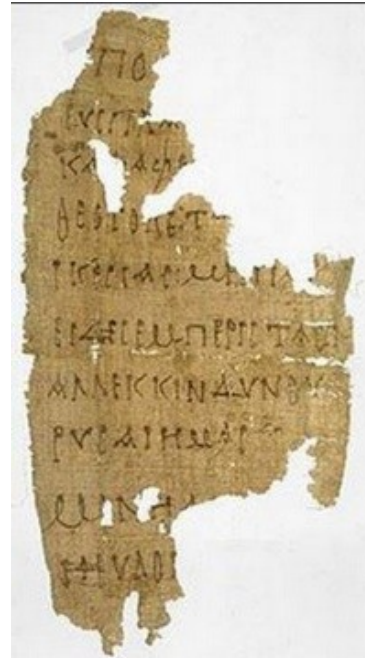 ΠΟ
ΕΥCΠΛΑ
ΚΑΤΑΦΕ
ΘΕΟΤΟΚΕΤ
ΕΙΚΕCΙΑCΜΗΠΑ
ΕΙΔΗCΕΜΠΕΡΙCΤΑC
ΑΛΛΕΚΚΙΝΔΥΝΟΥ
ΡΥCΑΙΗΜΑC
ΜΟΝΗ
ΗΕΥΛΟΓ